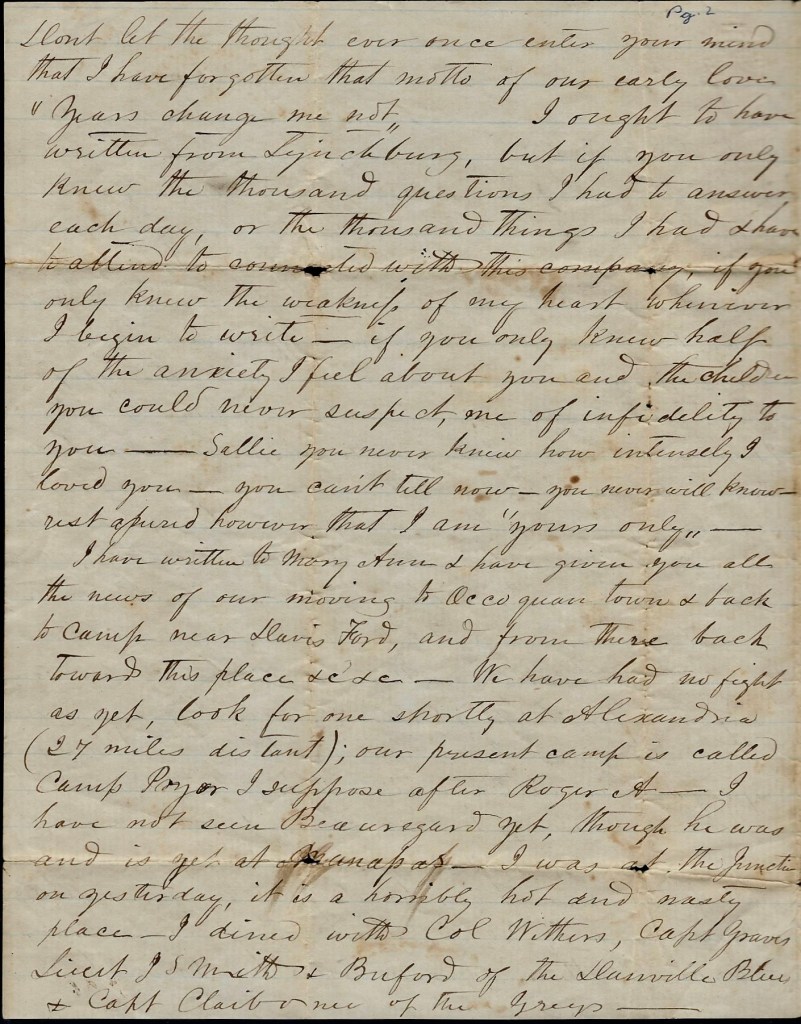 Pg. 2
Dont let the thought ever once enter your mind
that I have forgotten that motto of our early love
"Years change me not" I ought to have
written from Lynchburg, but if you only
knew the thousand questions I had to answer,
each day, or the thousand things I had & have
to attend to connected with this company, if you
only knew the weakness of my heart whenever
I begin to write — if you only knew half
of the anxiety I feel about you and the children
you could never suspect, me of infidelity to
you — Sallie you never knew how intensely I
loved you — you can't till now — you never will know —
rest assured however that I am "yours only" —
I have written to Mary Ann & have given you all
the news of our moving to Occoquan town & back
to Camp near Davis Ford, and from there back
toward this place &c &c — We have had no fight
as yet, look for one shortly at Alexandria
(27 miles distant); our present camp is called
Camp Pryor I suppose after Roger A — I
have not seen Beauregard yet, though he was
and is yet at Manassas — I was at the Junction
on yesterday, it is a horribly hot and nasty
place — I dined with Col Withers, Capt Graves
Lieut J Smith & Buford of the Danville Blues
& Capt Claiborne of the Greys —